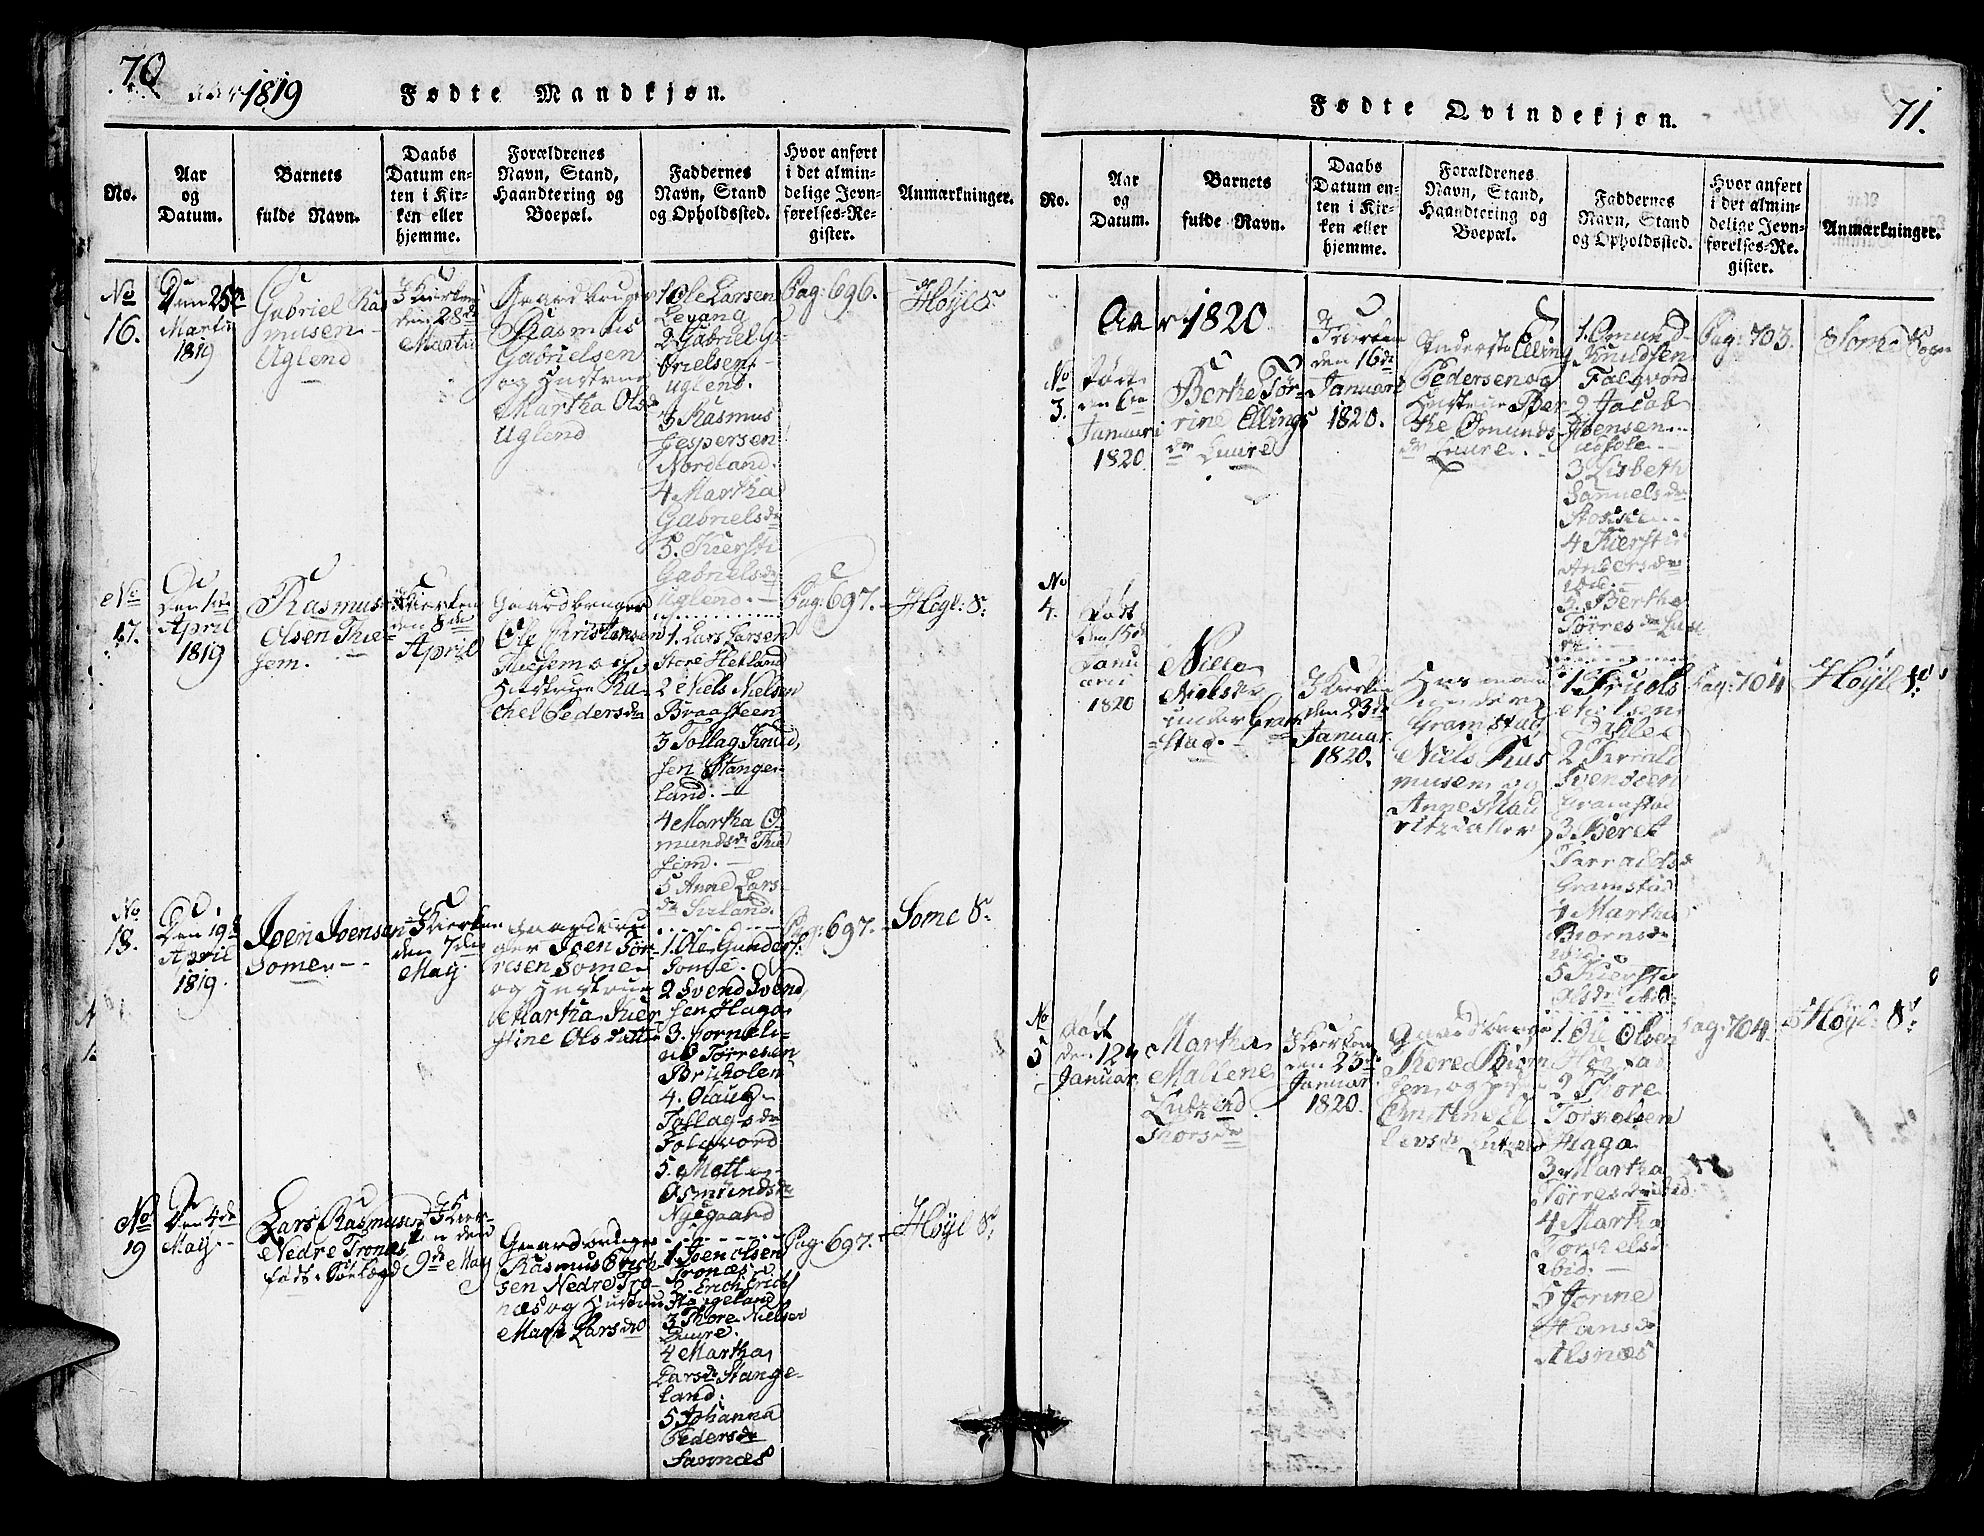 70
Aar 1819
Fødte Mandkjøn.
No.
Aar
og
Datum.
Barnets
fulde Navn.
Daabs
Datum en-
ten i Kir-
ken eller
hjemme.
Forældrenes
Navn, Stand,
Haandtering og
Boepæl.
Faddernes
Navn, Stand
og Opholdssted.
Hvor anført
i det almin-
delige Jevn-
førelses-Re-
gister.
Anmærkninger.
No
16.
Den 25de
Martii
1819
Gabriel Ras
musen
Uglend
I Kierken
den 28de
Martii
Gaardbruger
Rasmus
Gabrielsen
og Hustrue
Martha Olsdr
Uglend
1 Ole Larsen
Levang
2 Gabriel Ga
brielsen
Uglend.
3 Rasmus
Jespersen
Nordland.
4 Martha
Gabrielsdr
5. Kiersti
Gabrielsdr
Uglend.
Pag: 696.
Høyl S.
No
17.
Den 1ste
April
1819
Rasmus
Olsen Thie
sem.
I Kierken
den 8de
April
Gaardbruger
Ole Christensen
Thiesem og
Hustrue Ra-
chel Pedersdr
1. Lars Larsen
Store Hetland
2 Niels Nielsen
Braasteen
3 Tollag Knud
sen Stange-
land.
4 Martha O
mundsdr Thie
sem.
5 Anne Lars-
dr Sirland.
Pag: 697.
Høgl: S.
No
18.
Den 19de
April
1819.
Joen Joensen
Some
I Kierken
den 7de
May.
Joen Tør-
resen Some
og Hustrue
Martha Kier
stine Olsdatter
1. Ole Gunders.
Some.
2 Svend Svend
sen Haga
3. Corneli-
us Tørresen
Bruholen
4. Olaug
Tollagsdr
Folgvord
5. Mette
Osmundsdr
Nygaard
Pag: 697.
Some S.
No
19
Den 4de
May
Lars Rasmusen
Nedre Tronæs
I Kier-
ken den
9de May
Gaardbruger
Rasmus Erich
sen Nedre Tro-
næs og Hustrue
Mari Larsdr
1 Joen Olsen
Tronæs
2. Erich Erich
Stangeland
3 Thore Nielsen
Luure.
4 Martha
Larsdr Stange-
land.
5 Johanna
Pedersdr
Sannæs
Pag: 697.
Høyl S.
Fødte Qvindekjøn.
71.
No.
Aar
og
Datum.
Barnets
fulde Navn.
Daabs
Datum en-
ten i Kir-
ken eller
hjemme.
Forældrenes
Navn, Stand,
Haandtering og
Boepæl.
Faddernes
Navn, Stand
og Opholdssted.
Hvor anført
i det almin-
delige Jevn-
førelses-Re-
gister.
Anmærkninger.
Aar 1820
No
3.
Født
den 6te
Januari
1820
Berthe Tør-
rine Ellings
dr Luure
I Kierken
den 16de
Januari
1820.
Elling
Pedersen og
Hustrue Ber
the Omunds
dr Luure.
1. Omund
Knudsen
Folgvord
2 Jacob
Joensen
3 Lisbeth
Samuelsdr
4 Kiersti
Andersdr
ibid.
5. Berthe
Tørresdr Luure
Pag: 703.
Some Sogn
No
4.
Født
den 15de
Janu
arii
1820
Nielsdr
under Gram
stad.
I Kierken
den 23de
Januar.
1820.
Huusmand
Gramstad
Niels Ras
musen og
Anne Mau
ritzdatter
Olsen
2 Torrald
Svendsen
Gramstad
3 Beret
Torraldsdr
Gramstad
4 Martha
Biornsdr
ibid.
5 Kiersti
Olsdr ibid
Pag: 704
Høyl S.
No
5
Født
den 12te
Januar.
Martha
Malene
Thorsdr
I Kierken
den 23de
Januar.
1820.
Gaardbruger
Thore Biørn
sen, og
1. Ole Olsen
2 Thore
Torkelsen
Haga.
3 Martha
Tørresdr ibid.
4 Martha
Torkelsdr
ibid.
5 Jorine
Hansdr
Alsnæs
Pag: 704.
Høyl: S.